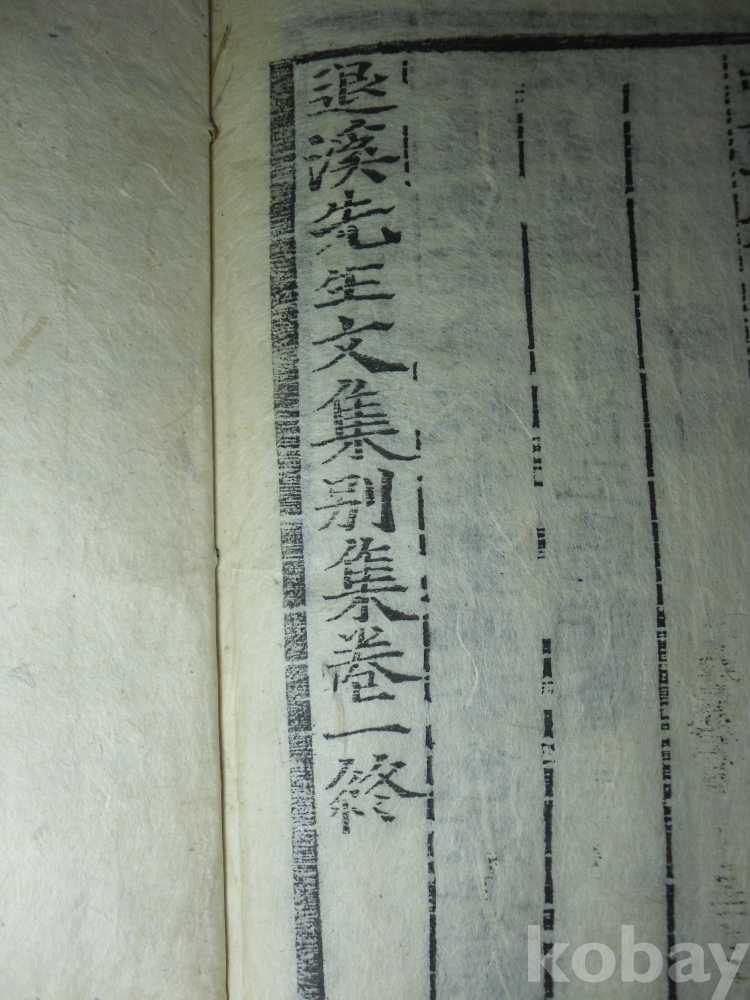 退溪先生文集别集卷一終
kobay